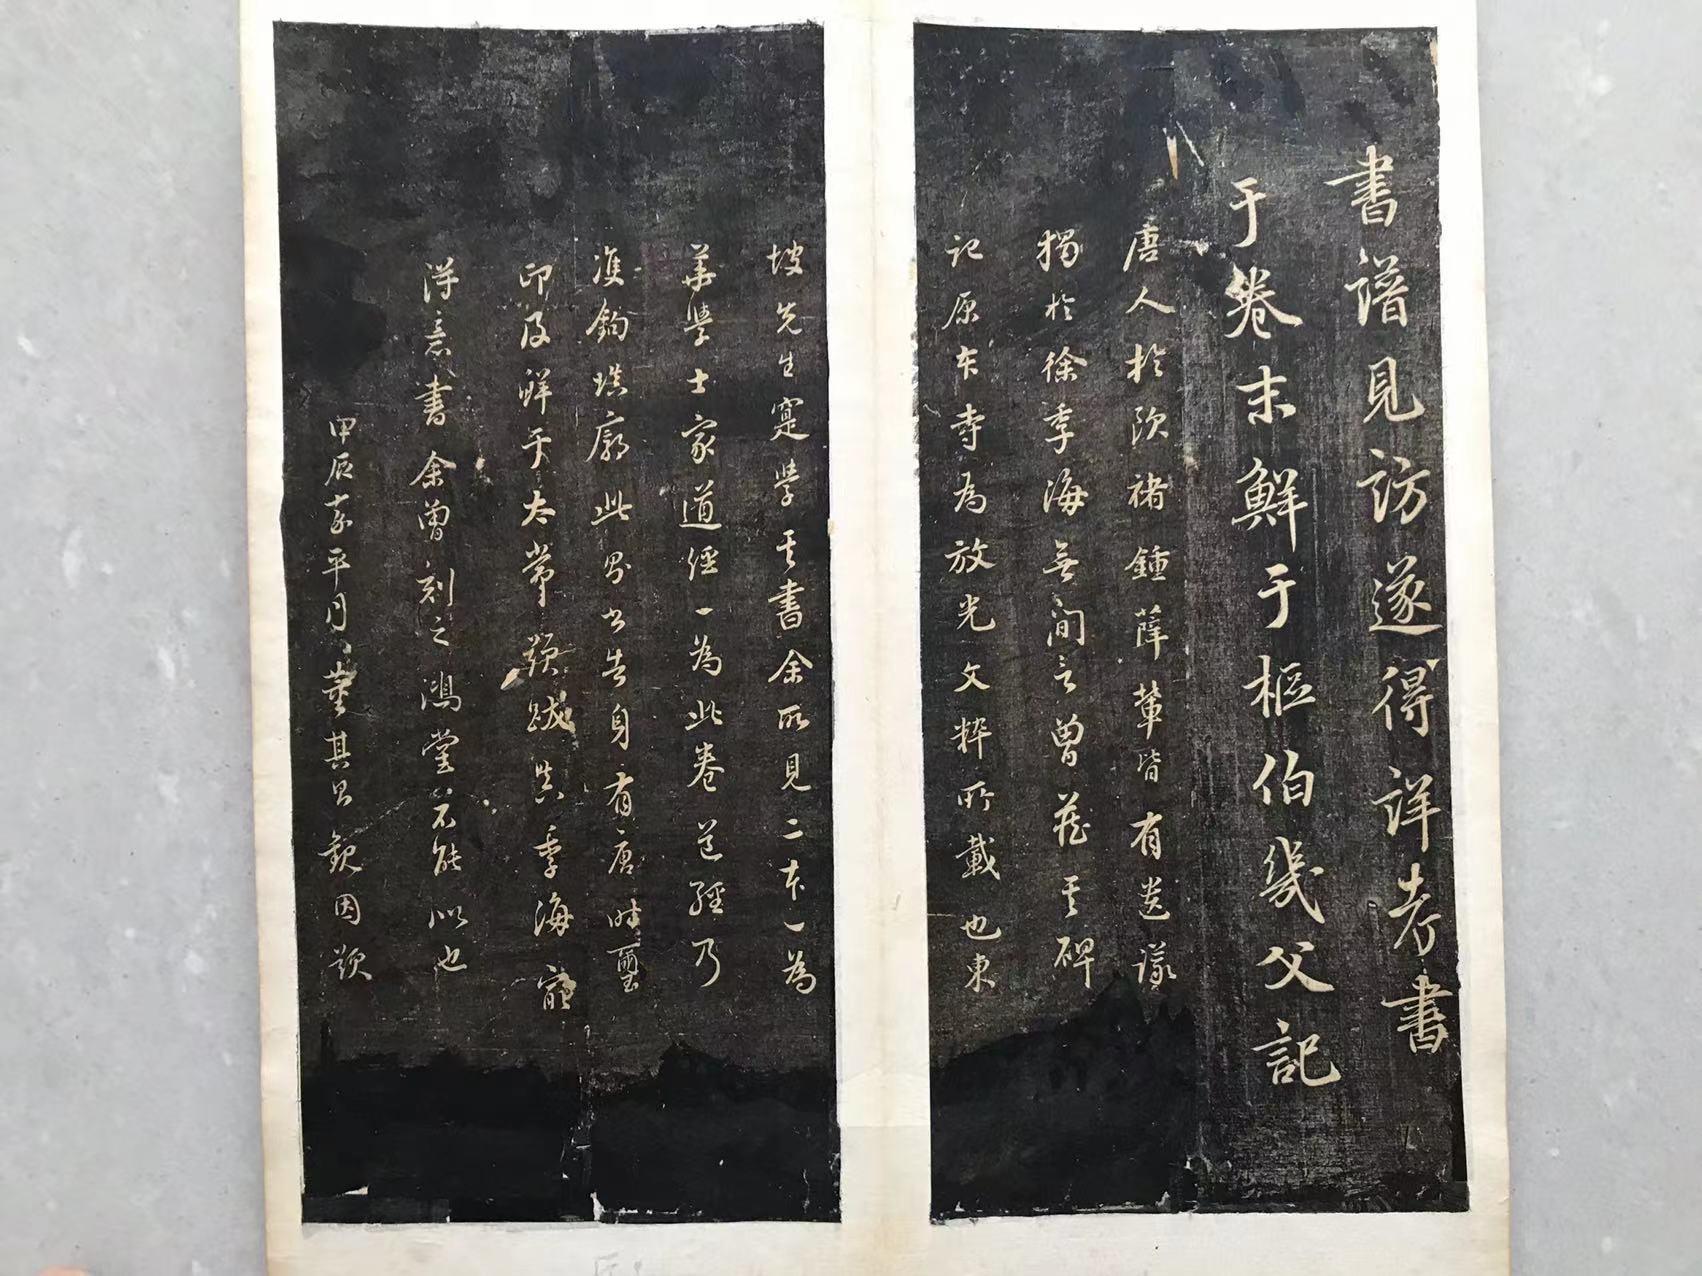 書譜見訪遂得詳考書
于卷末鮮于樞伯幾父記
唐人於歐褚鍾薛輩皆有遺議
獨於徐季海無間言曾藏其碑
記原本寺為放光文粹所載也東
坡先生寔學其書余所見二本一為
華學士家道經一為此卷道經乃
雙鉤填廓此告身有唐時璽
印及鮮于太常題跋真季海最
得意書余曾刻之鴻堂不能似也
甲辰嘉平月董其昌觀因題